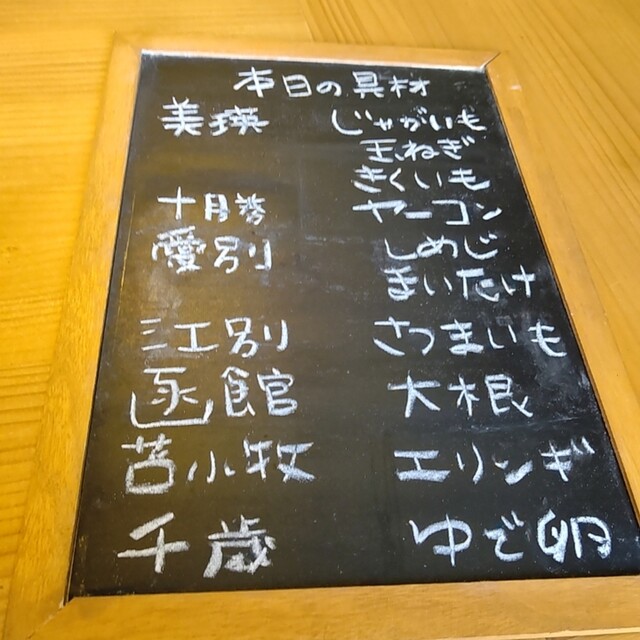 本日の具材
美瑛 じゃがいも
玉ねぎ
きくいも
十勝 ヤーコン
愛別 しめじ
まいたけ
江別 さつまいも
函館 大根
苫小牧 エリンギ
千歳 ゆで卵